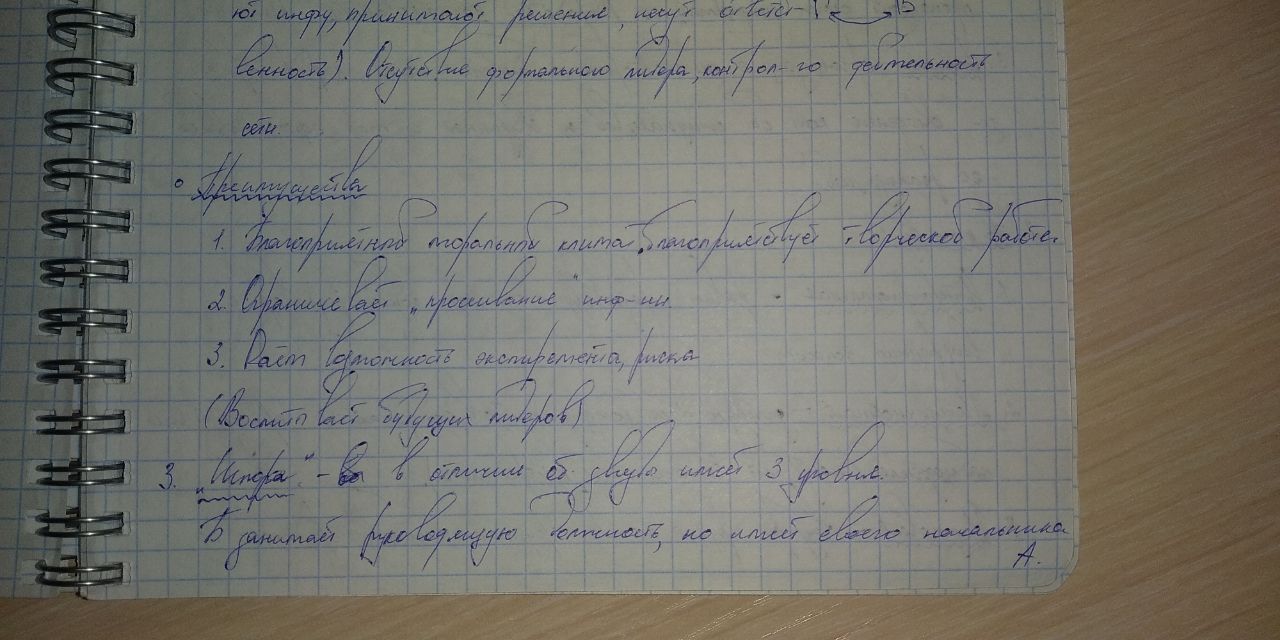 ют инфу, принимают решение, несут ответст-
венность). Отсутствие формального лидера, контрол-го деятельность
сети.
Преимущества
1. Благоприятный моральный климат, благоприятствует творческой работе.
2. Ограничевает „просеивание" инф-ии.
3. Даёт возможность эксперементы, риска
(Воспитывает будущих лидеров)
3. „Шпора" - в отличие от двух имеет 3 уровня.
Б занимает руководящую должность, но имеет своего начальника
А.